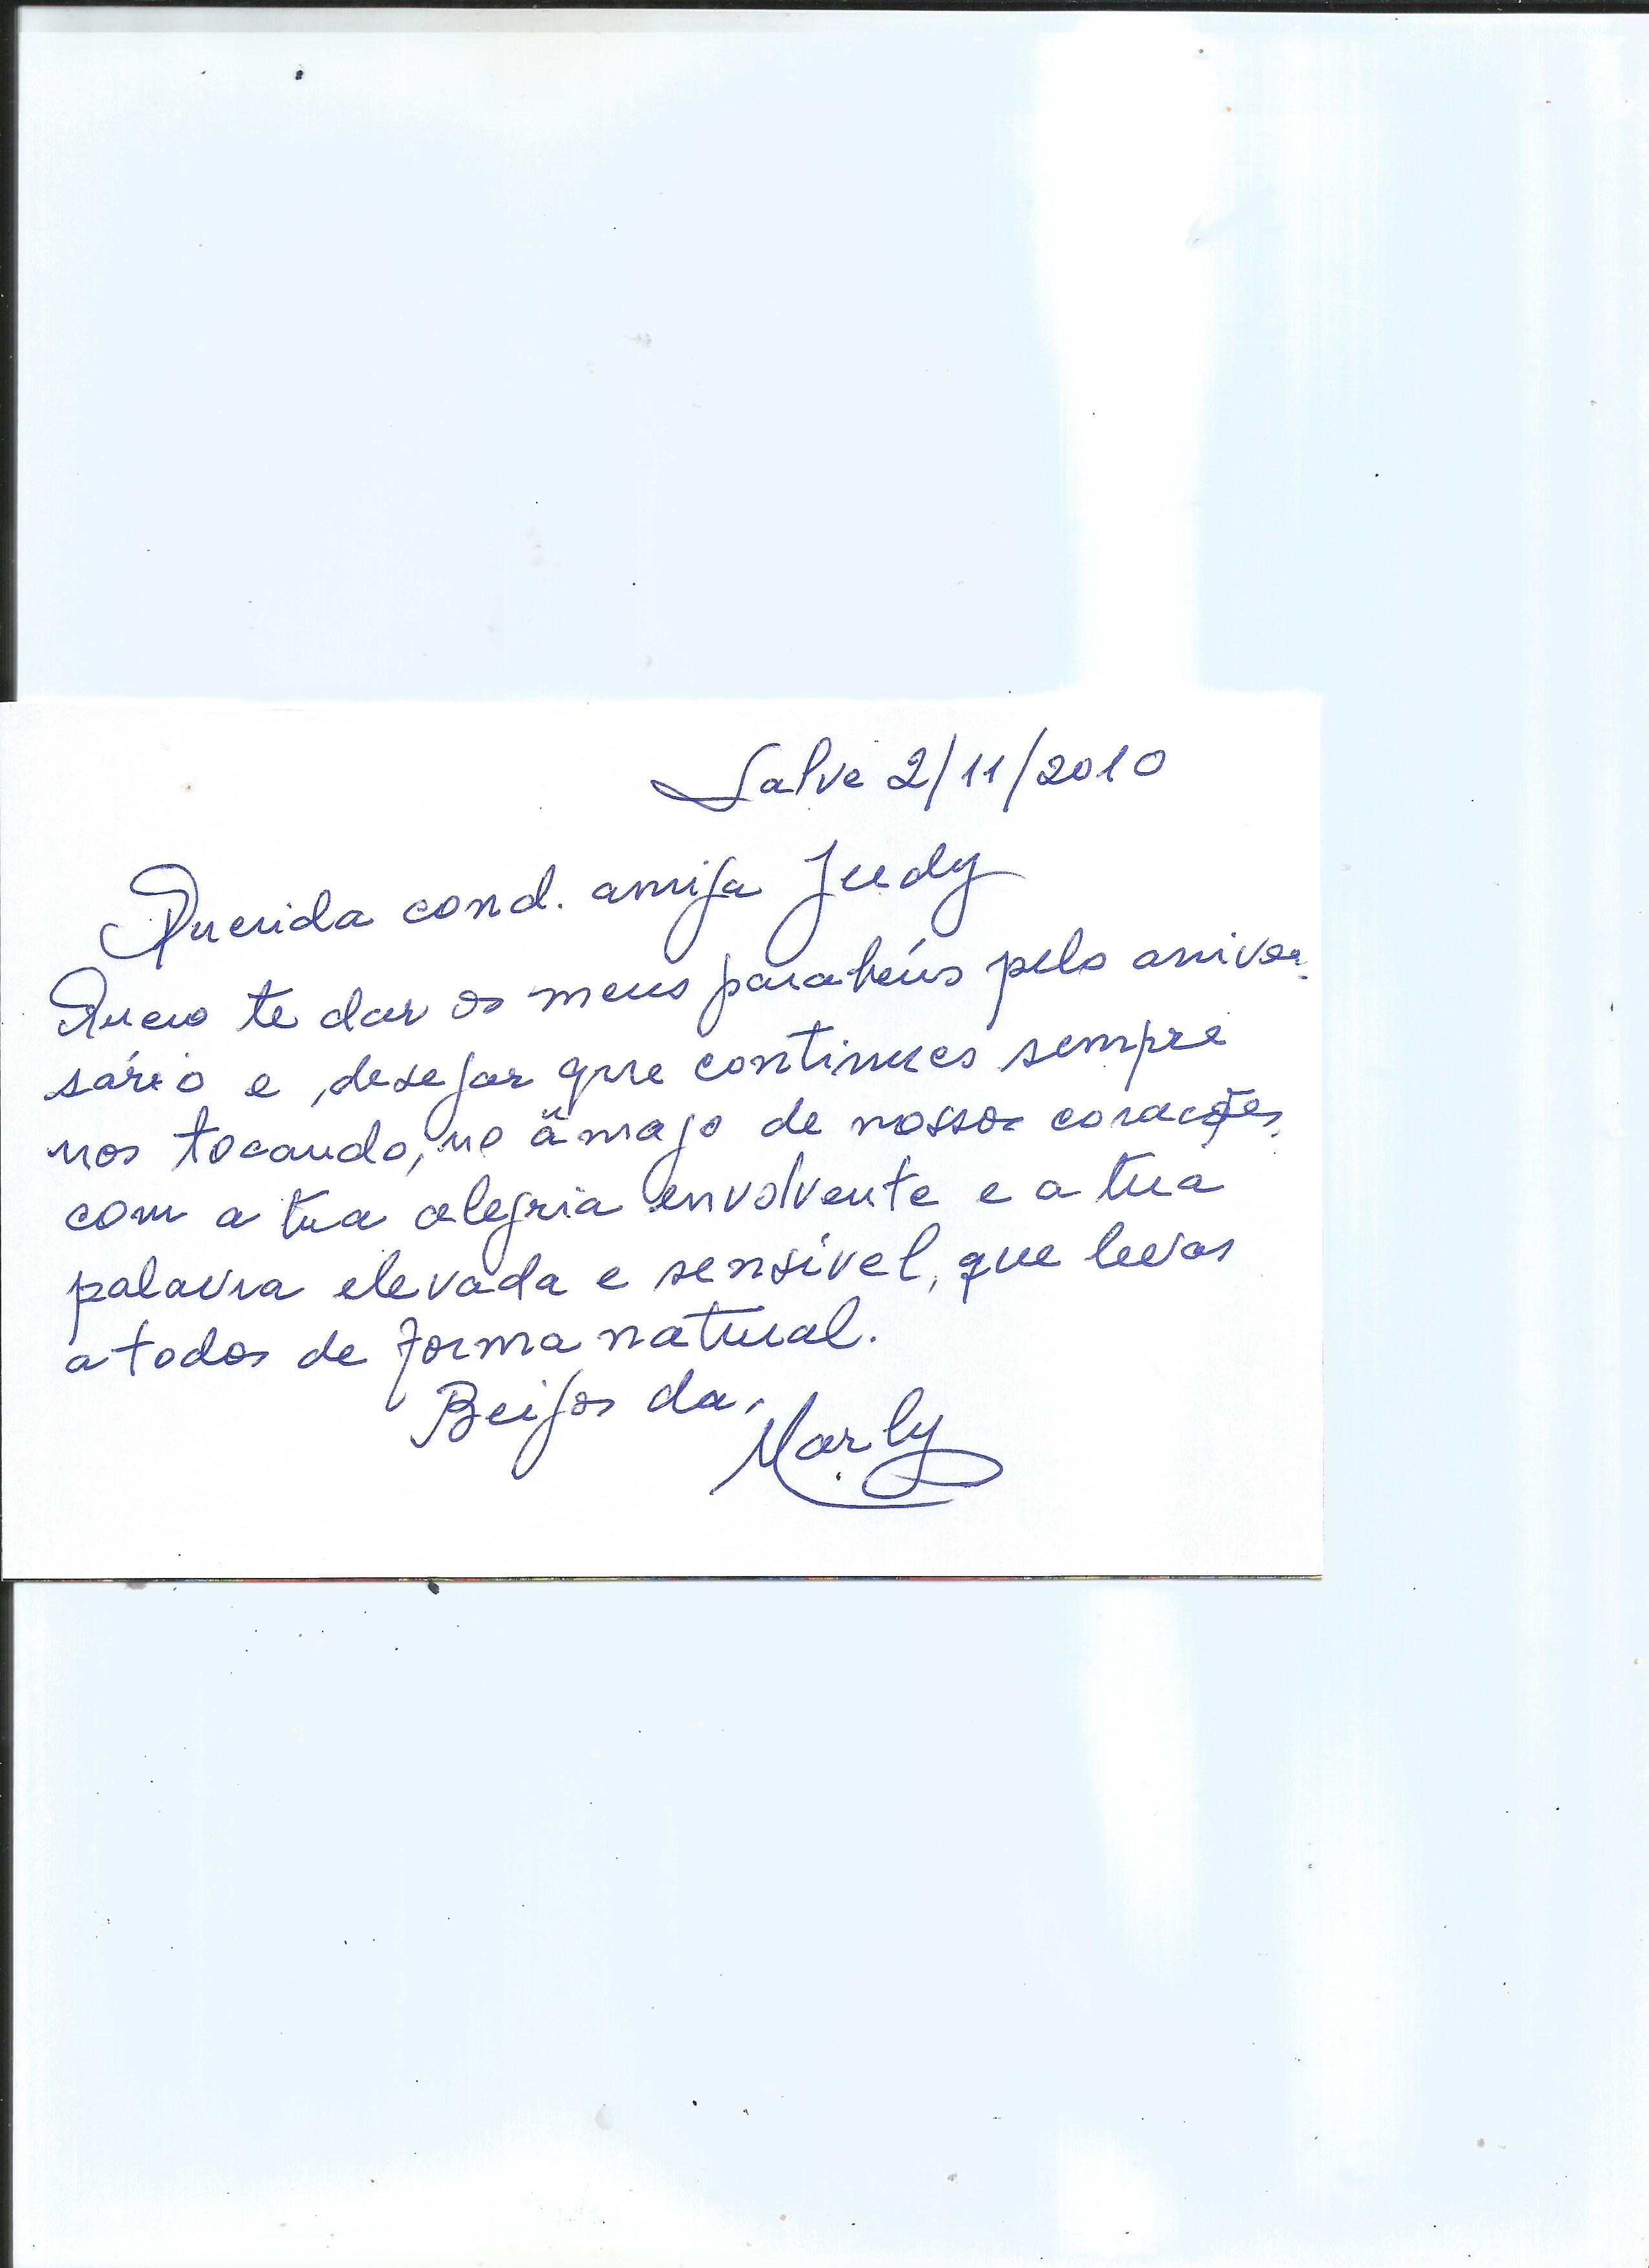 Salve 2/11/2010
Querida cond. amiga Judy
Quero te dar os meus parabéns pelo aniver-
sário e desejar que continues sempre
nos tocando, no âmago de nossos corações,
com a tua alegria envolvente e a tua
palavra elevada e sensível, que levas
a todos de forma natural.
Beijos da,
Marly